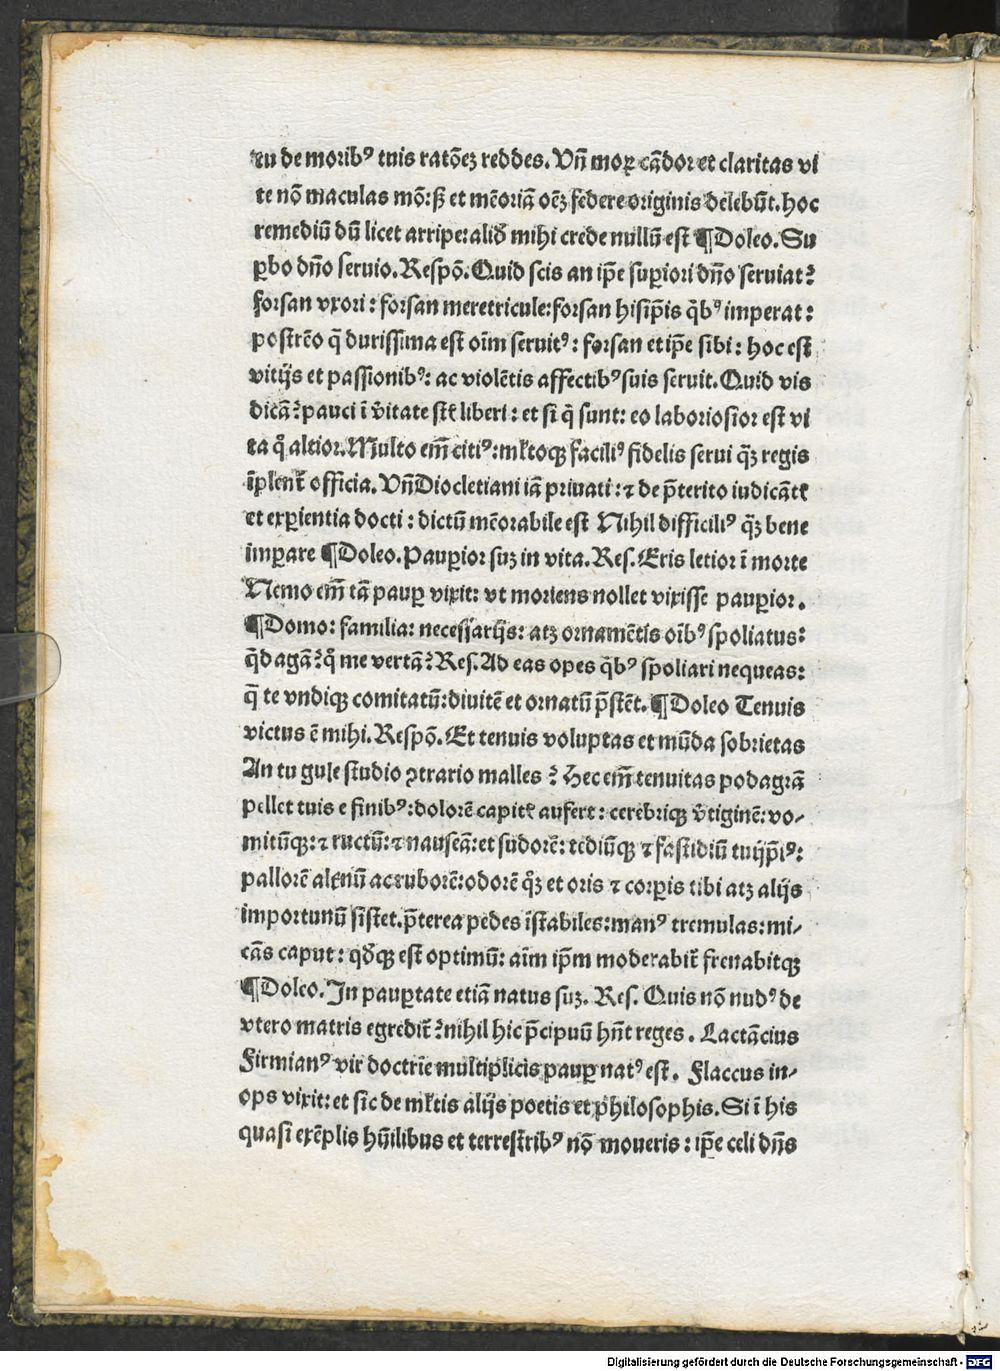 tu de moribꝰ tuis ratõeʒ reddes. Vñ moꝝ cãdor et claritas vi
te nõ maculas mõ: ß et mẽoriã oẽʒ federe originis delebũt. hoc
remediũ dũ licet arripe: aliđ mihi crede nullũ est ¶ Doleo. Su
ꝑbo dño seruio. Respõ. Quid scis an ip̃e suꝑiori dño seruiat?
forsan vxori: forsan meretricule: forsan hisip̃is q̃bꝰ imperat:
postrẽo q̃ durissima est oĩm seruitꝰ: forsan et ip̃e sibi: hoc est
vitijs et passionibꝰ: ac violẽtis affectibꝰ suis seruit. Quid vis
dicã? pauci ĩ v̾itate sũt liberi: et si q̃ sunt: eo laboriosior est vi
ta q̊ altior. Multo em̃ citiꝰ: ml̃toqꝫ faciliꝰ fidelis serui q̃ʒ regis
ĩplent̃ officia. Vñ Diocletiani iã priuati: ⁊ de p̃terito iudicãtꝭ
et exꝑientia docti: dictũ mẽorabile est Nihil difficiliꝰ q̃ʒ bene
imꝑare ¶ Doleo. Pauꝑior suʒ in vita. Res. Eris letior ĩ morte
Nemo em̃ tã pauꝑ vixit: vt moriens nollet vixisse pauꝑior.
¶ Domo: familia: necessarijs: atʒ ornamẽtis oĩbꝰ spoliatus:
q̃d agã? q̊ me vertã? Res. Ad eas opes q̃bꝰ spoliari nequeas:
q̃ te vndiqꝫ comitatũ: diuitẽ et ornatũ p̃stẽt. ¶ Doleo Tenuis
victus ẽ mihi. Respõ. Et tenuis voluptas et mũda sobrietas
An tu gule studio ↄtrario malles? Hec em̃ tenuitas podagrã
pellet tuis e finibꝰ: dolorẽ capitꝭ aufert: cerebriqꝫ v̾tiginẽ: vo-
mitũqꝫ: ⁊ ructũ: ⁊ nauseã: et sudorẽ: tediũqꝫ ⁊ fastidiũ tuijp̃iꝰ:
pallorẽ alẽnũ ac ruborẽ: odorẽ q̊ʒ et oris ⁊ corꝑis tibi atʒ alijs
importunũ sistet. p̃terea pedes ĩstabiles: manꝰ tremulas: mi-
cãs caput: qđqꝫ est optimũ: aĩm ip̃m moderabit̃ frenabitqꝫ
¶ Doleo. In pauꝑtate etiã natus suʒ. Res. Quis nõ nudꝰ de
vtero matris egredit̃? nihil hic p̃cipuũ hñt reges. Lactãcius
Firmianꝰ vir doctrĩe multiplicis pauꝑ natꝰ est. Flaccus in-
ops vixit: et sic de ml̃tis alijs poetis et philosophis. Si ĩ his
quasi exẽplis hũilibus et terrestribꝰ nõ moueris: ip̃e celi dñs
Digitalisierung gefördert durch die Deutsche Forschungsgemeinschaft - DFG